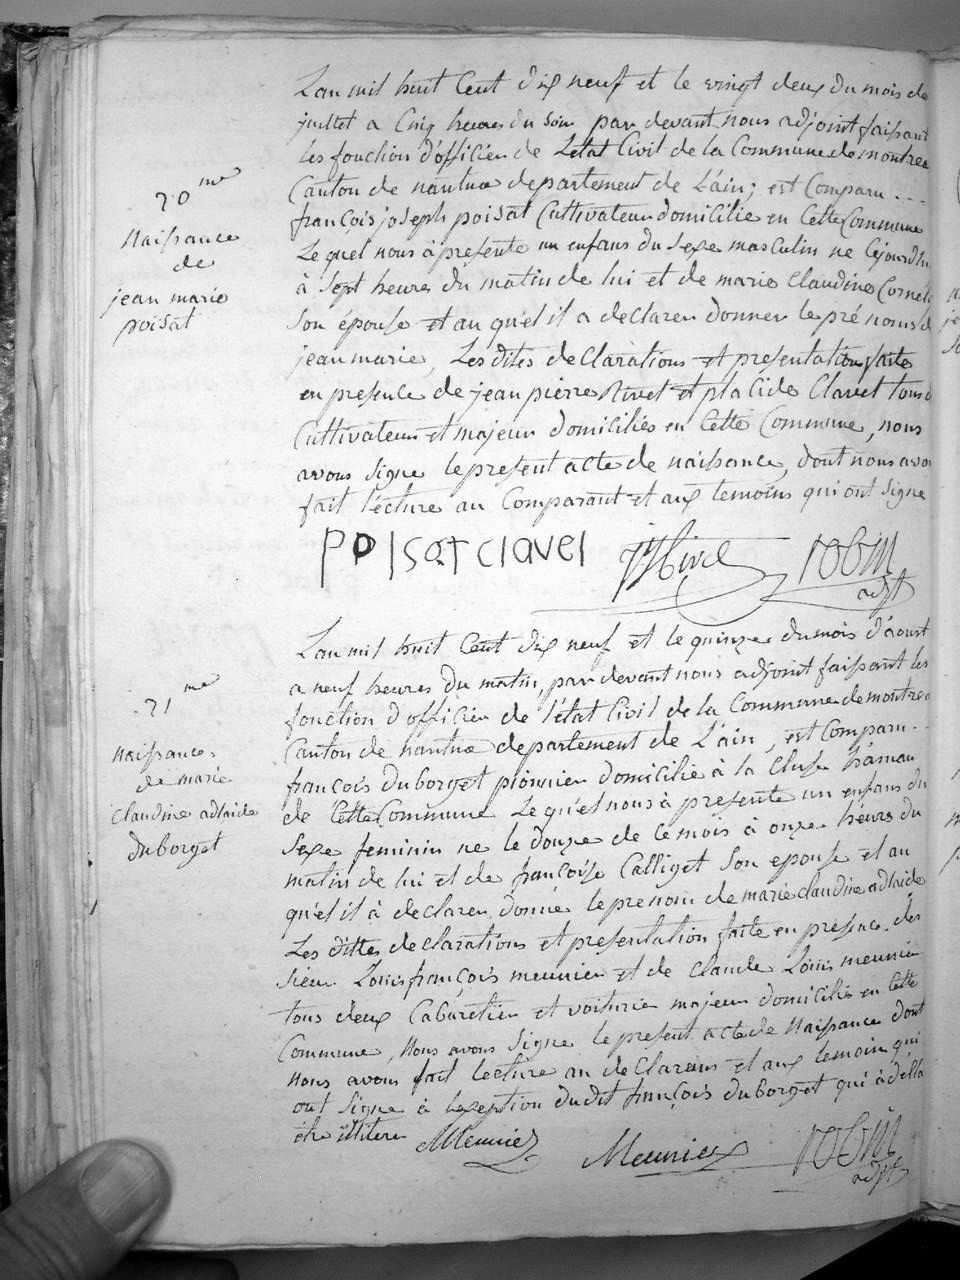 20me
Naissance
de
jean marie
poisat
Lan mil huit Cent dix neuf et le vingt deux du mois de
juillet a Cinq heures du soir par devant nous adjoint faissant
les fonction d'officier de L'etat Civil de la Commune de montrea
Canton de nantua departement de L'ain; est Comparu ...
françois joseph poisat Cultivateur domicilie en Cette Commune
Le quel nous à présenté un enfans du sexe masculin ne Cejourdhu
à Sept heures du matin de lui et de marie Claudine Cornét
son épouse et au qu'el il a declarer donner le pré noms d
jean marie, Les dites declarations et presentation faite
en presence de jean pierre Rivet et placide Clavel tous d
Cultivateur et majeur domiciliés en Cette Commune, nous
avons signe le present acte de naissance, dont nous avon
fait lécture au Comparant et aux temoins qui ont signe
poisat clavel
adjt
71me
Naissance
de marie
Claudine adlaide
duborget
Lan mil huit Cent dix neuf et le quinze du mois d'aoust
a neuf heures du matin, par devant nous adjoint faissant les
fonction d'officier de l'état Civil de la Commune de montrea
Canton de nantua departement de L'ain, est Comparu ..
françois duborget pionnier domicilié à la Cluse hameau
de Cette Commune Le qu'el nous à presente un enfans du
Sexe feminin ne le douze de ce mois à onze héures du
matin de lui et de françoise Calliget Son epouse et au
qu'el il à declarer donné le prenom de marie claudine adlaide
Les dittes declarations et presentation faite en presence des
sieur Louis françois meunier et de Claude Louis meunier
tous deux Cabaretier et voiturie majeur domicilié en Cette
Commune, Nous avons signe le present acte de Naissance dont
Nous avons fait lecture au declarans et aux temoin qui
ont signe à lexeption dudit françois duborget qui à déla
étre illitere Meunier
Meunier
adjt